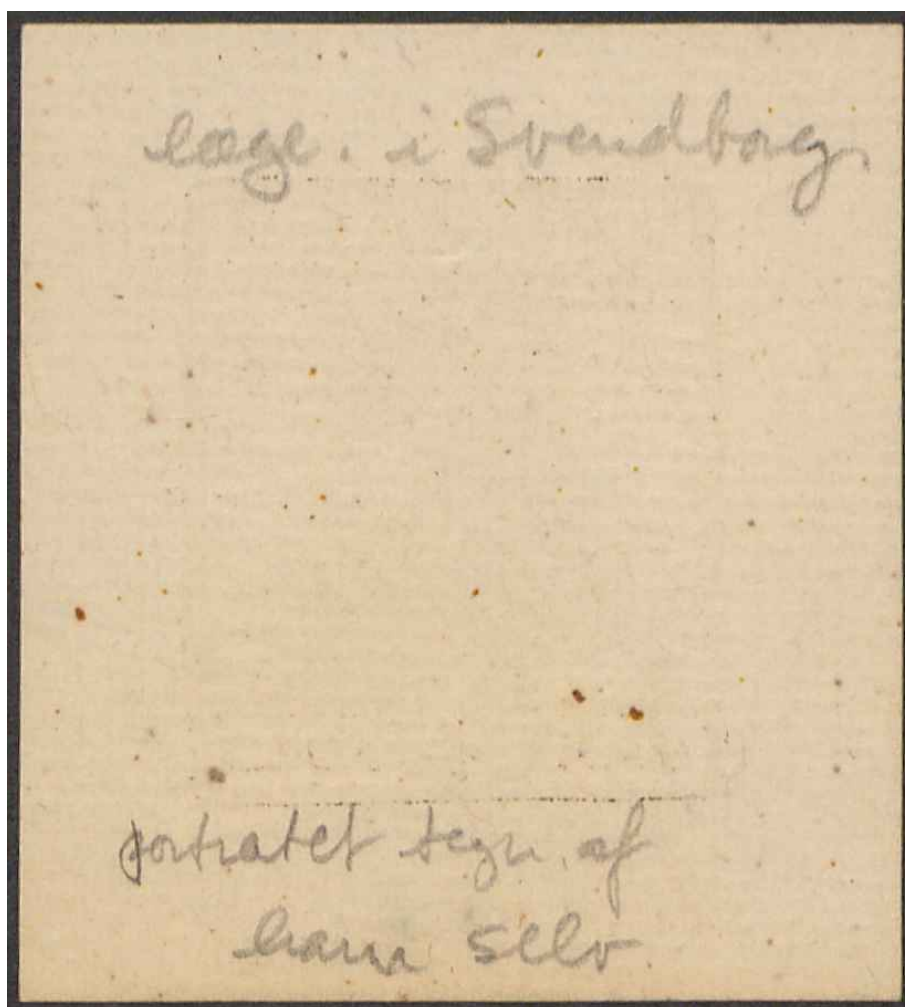 læge. i Svendborg
portrætet tegn. af
ham selv